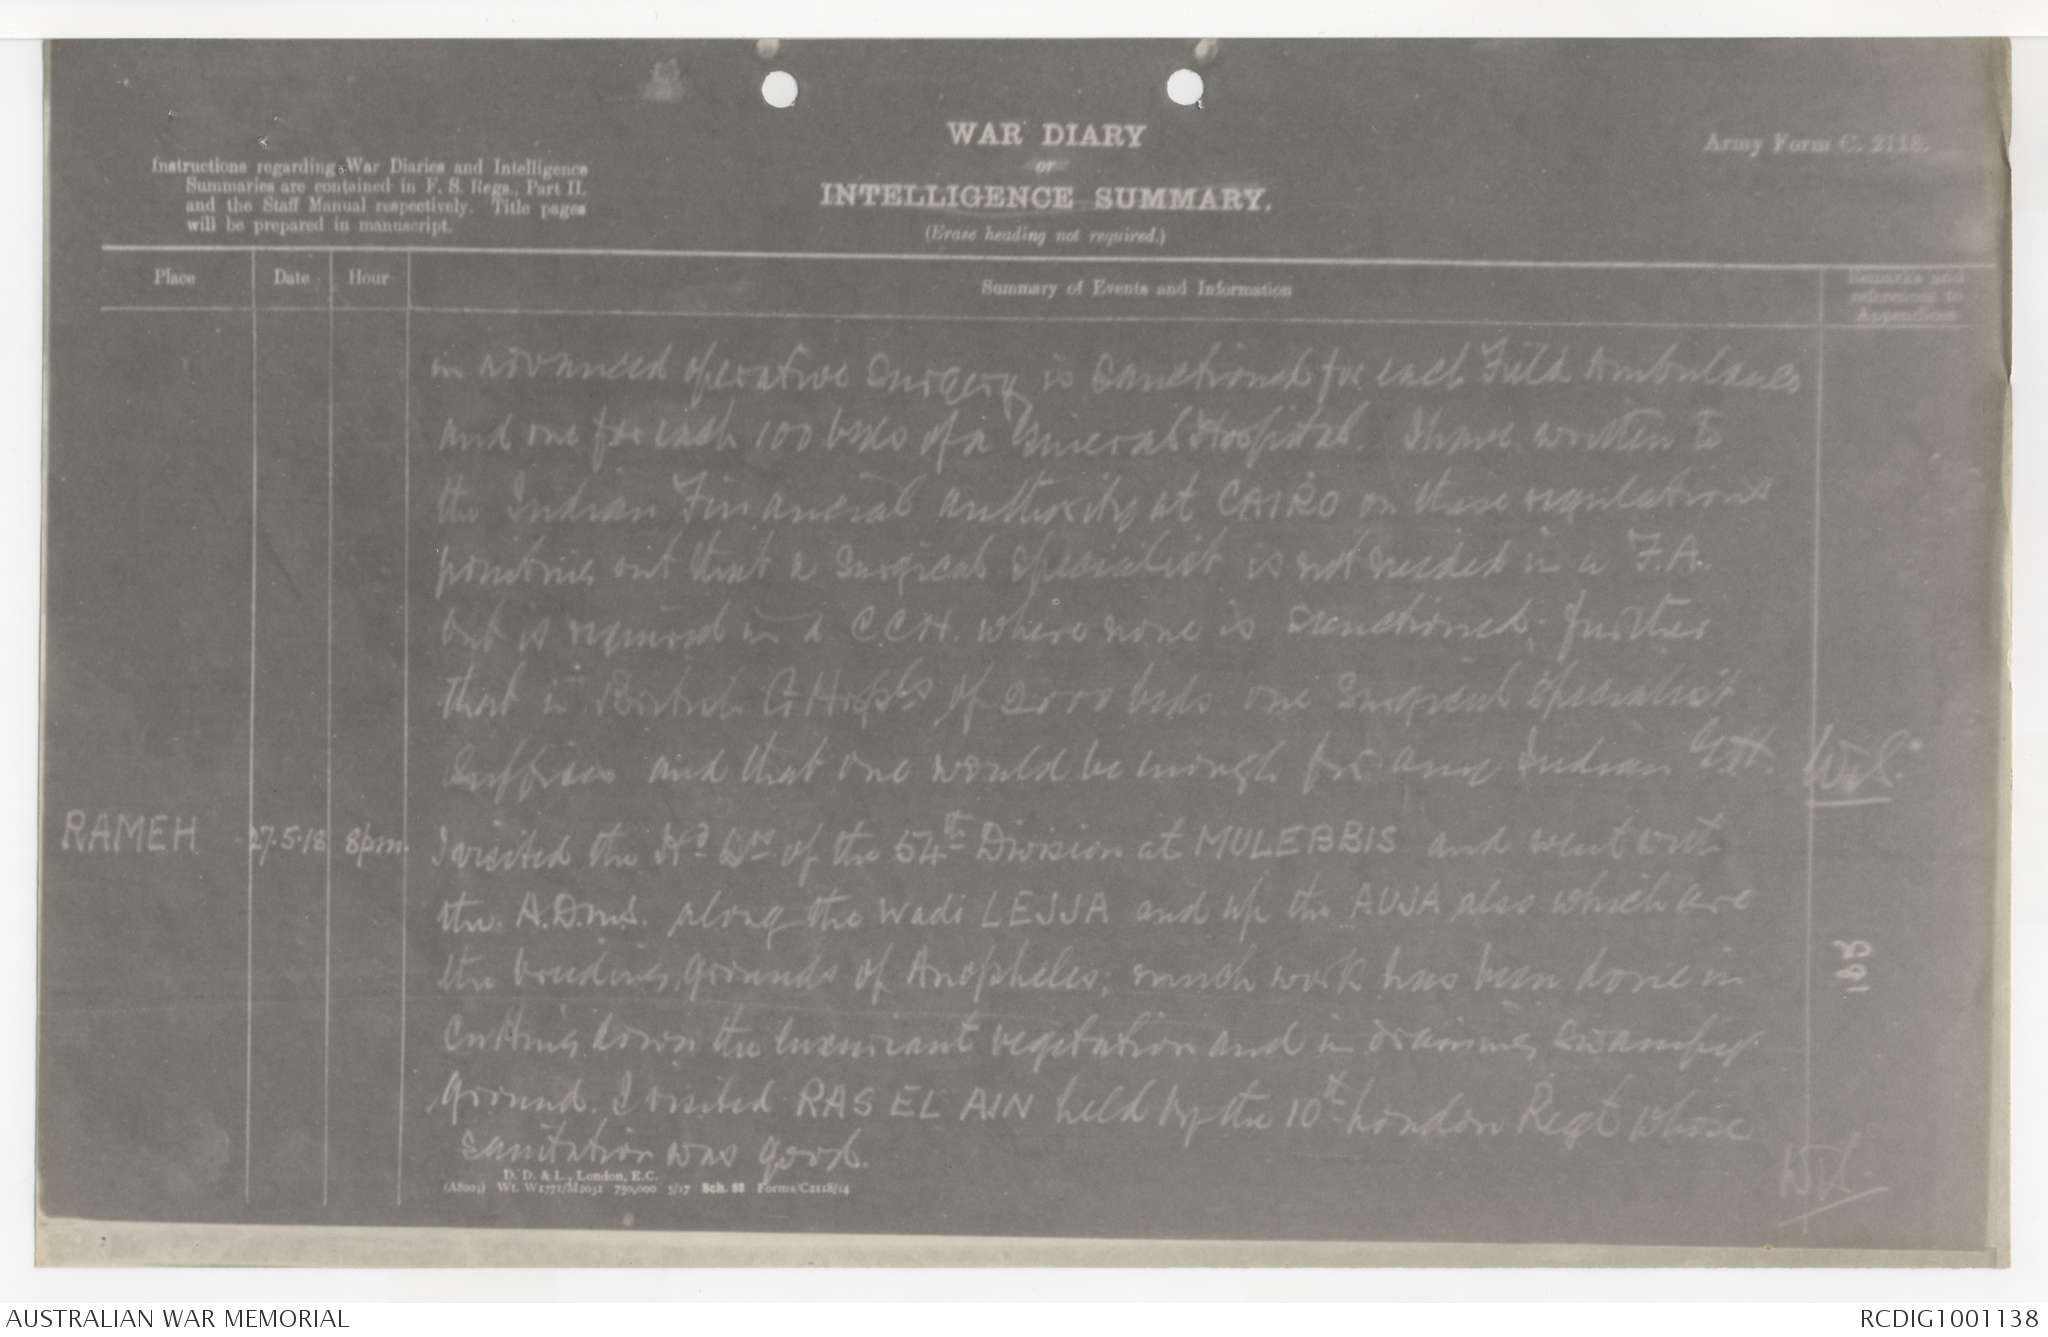 WAR DIARY
or
INTELLIGENCE SUMMARY.
(Erase heading not required.)
Army Form C. 2118.
Instructions regarding War Diaries and Intelligence
Summaries are contained in F. S. Regs., Part II.
and the Staff Manual respectively. Title pages
will be prepared in manuscript.
Place
Date
Hour
Summary of Events and Information
Remarks and
references to
Appendices
in advanced operative surgery is sanctioned for each Field Ambulance
and one for each 100 beds of a General Hospital. I have written to
the Indian Financial authority at CAIRO on these regulations
pointing out that a surgical specialist is not needed in a F.A.
but is required in a C.C.H. where none is sanctioned; further
that in British G. Hospls of 2000 beds one surgical specialist
suffices and that one would be enough for any Indian G.H.
RAMEH 27.5.18 8pm. I visited the Hd Qrs of the 54th Division at MULEBBIS and went with
the A.D.M.S. along the Wadi LEJJA and up the AUJA also which are
the breeding grounds of Anopheles; much work has been done in
cutting down the luxuriant vegetation and in draining swampy
ground. I visited RAS EL AIN held by the 10th London Regt whose
sanitation was good.
188
D. D. & L., London, E.C.
(A8004) Wt. W1771/M2031 750,000 5/17 Sch. 52 Forms/C2118/14
AUSTRALIAN WAR MEMORIAL
RCDIG1001138